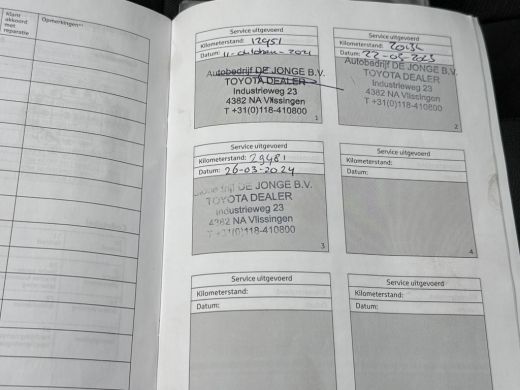 Klant
akkoord
met
reparatie
Opmerkingen
Service uitgevoerd
Kilometerstand: 12951
Datum: 11-oktober-2021
Autobedrijf DE JONGE B.V.
TOYOTA DEALER
Industrieweg 23
4382 NA Vlissingen
T +31(0)118-410800
1
Service uitgevoerd
Kilometerstand:
Datum: 22-05-2023
Autobedrijf DE JONGE B.V.
TOYOTA DEALER
Industrieweg 23
4382 NA Vlissingen
T +31(0)118-410800
2
Service uitgevoerd
Kilometerstand: 29481
Datum: 26-03-2024
DE JONGE B.V.
TOYOTA DEALER
Industrieweg 23
4382 NA Vlissingen
T +31(0)118-410800
3
Service uitgevoerd
Kilometerstand:
Datum:
4
Service uitgevoerd
Kilometerstand:
Datum:
Service uitgevoerd
Kilometerstand:
Datum: